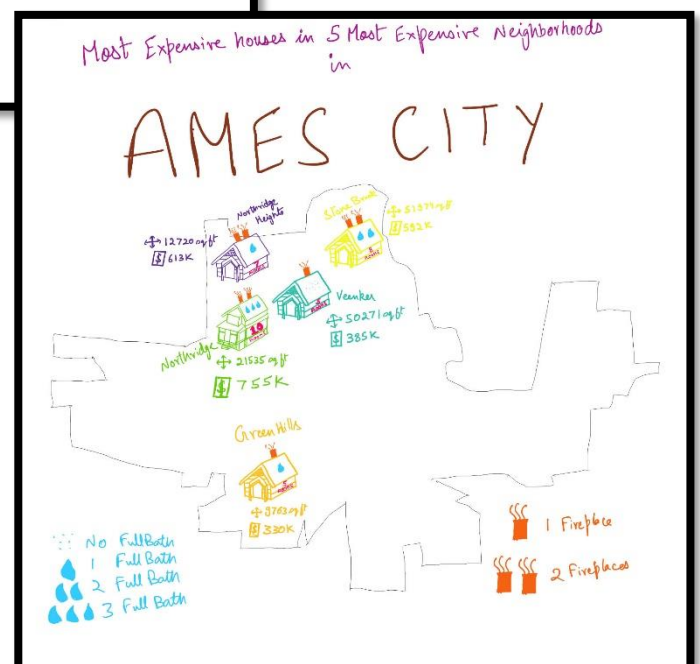 Most Expensive houses in 5 Most Expensive Neighborhoods
in
AMES CITY
Northridge
Heights
12720 sq ft
$ 613K
Stone Brook
$ 592K
Veenker
50271 sq ft
$ 385K
10
Northridge
21535 sq ft
$ 755K
Green Hills
$ 330K
No Full Bath
1 Full Bath
2 Full Bath
3 Full Bath
1 Fireplace
2 Fireplaces